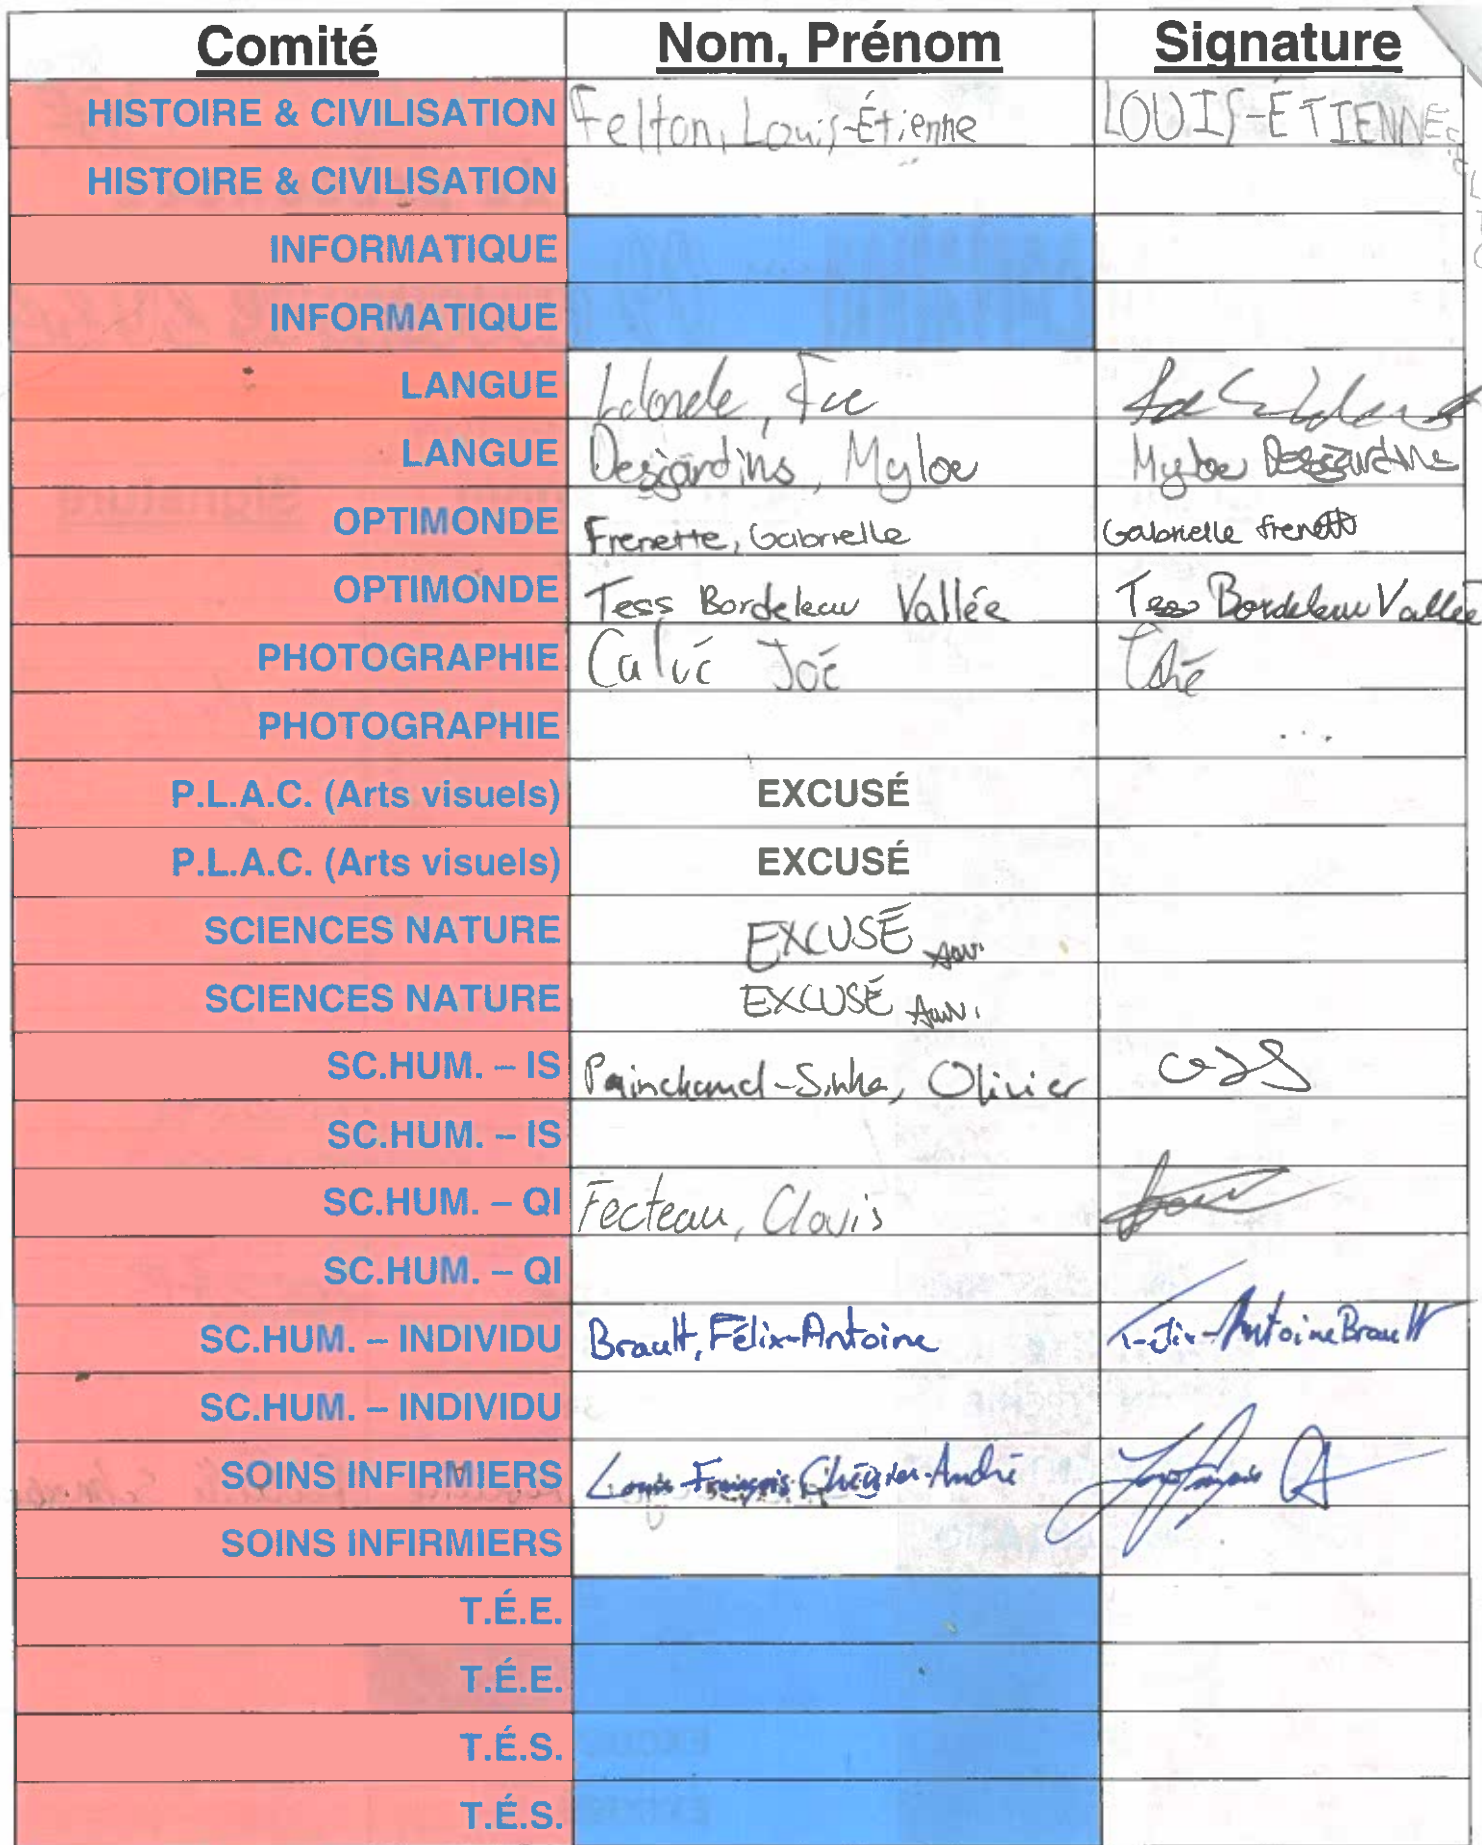 Comité Nom, Prénom Signature
HISTOIRE & CIVILISATION Felton, Louis-Étienne LOUIS-ÉTIENNE
HISTOIRE & CIVILISATION
INFORMATIQUE
INFORMATIQUE
LANGUE Lalonde,
LANGUE Desjardins, Myloe Myloe Desjardins
OPTIMONDE Frenette, Gabrielle Gabrielle Frenette
OPTIMONDE Tess Bordeleau Vallée Tess Bordeleau Vallée
PHOTOGRAPHIE Calvé Joé
PHOTOGRAPHIE
P.L.A.C. (Arts visuels) EXCUSÉ
P.L.A.C. (Arts visuels) EXCUSÉ
SCIENCES NATURE EXCUSÉ
SCIENCES NATURE EXCUSÉ
SC.HUM. – IS Painchaud-Sinha, Olivier
SC.HUM. – IS
SC.HUM. – QI Fecteau, Clovis
SC.HUM. – QI
SC.HUM. – INDIVIDU Brault, Félix-Antoine Félix-Antoine Brault
SC.HUM. – INDIVIDU
SOINS INFIRMIERS Louis-François Chénier-André
SOINS INFIRMIERS
T.É.E.
T.É.E.
T.É.S.
T.É.S.